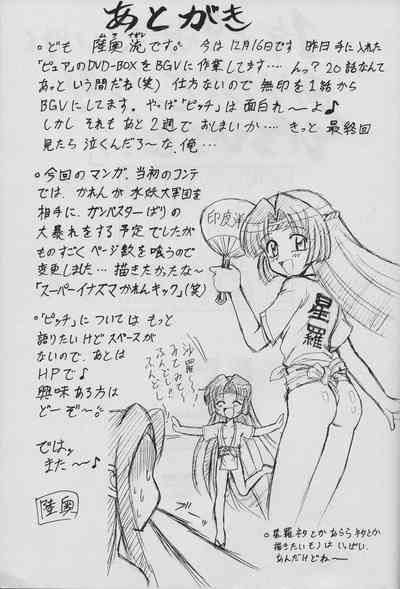 あとがき
○ども 陸奥流です。 今は12月16日です 昨日手に入れた
「ピュア」のDVD-BOXをBGVに作業してます‥‥ んっ?20話なんて
あっという間だね(笑) 仕方ないので 無印を1話から
BGVにしてます。 やっぱ「ピッチ」は面白れ〜よ♪
しかし それもあと2週でおしまいか‥‥ きっと 最終回
見たら 泣くんだろ〜な、俺…
○今回のマンガ、当初のコンテ
では、かれんが水妖大軍団を
相手に、ガンバスターばりの
大暴れをする予定でしたが
ものすごくページ数を喰うので
変更しました… 描きたかったな〜
「スーパーイナズマかれんキック」(笑)
○「ピッチ」については もっと
語りたいけどスペースが
ないので、あとは
HPで♪
興味ある方は
ど〜ぞ〜。
では
また〜♪
陸奥
印度洋
星羅
沙羅〜
みてみて
ふんどし〜
ふんどし
○星羅ネタとか あららネタとか
描きたいモノはいっぱい
あんだけどね〜